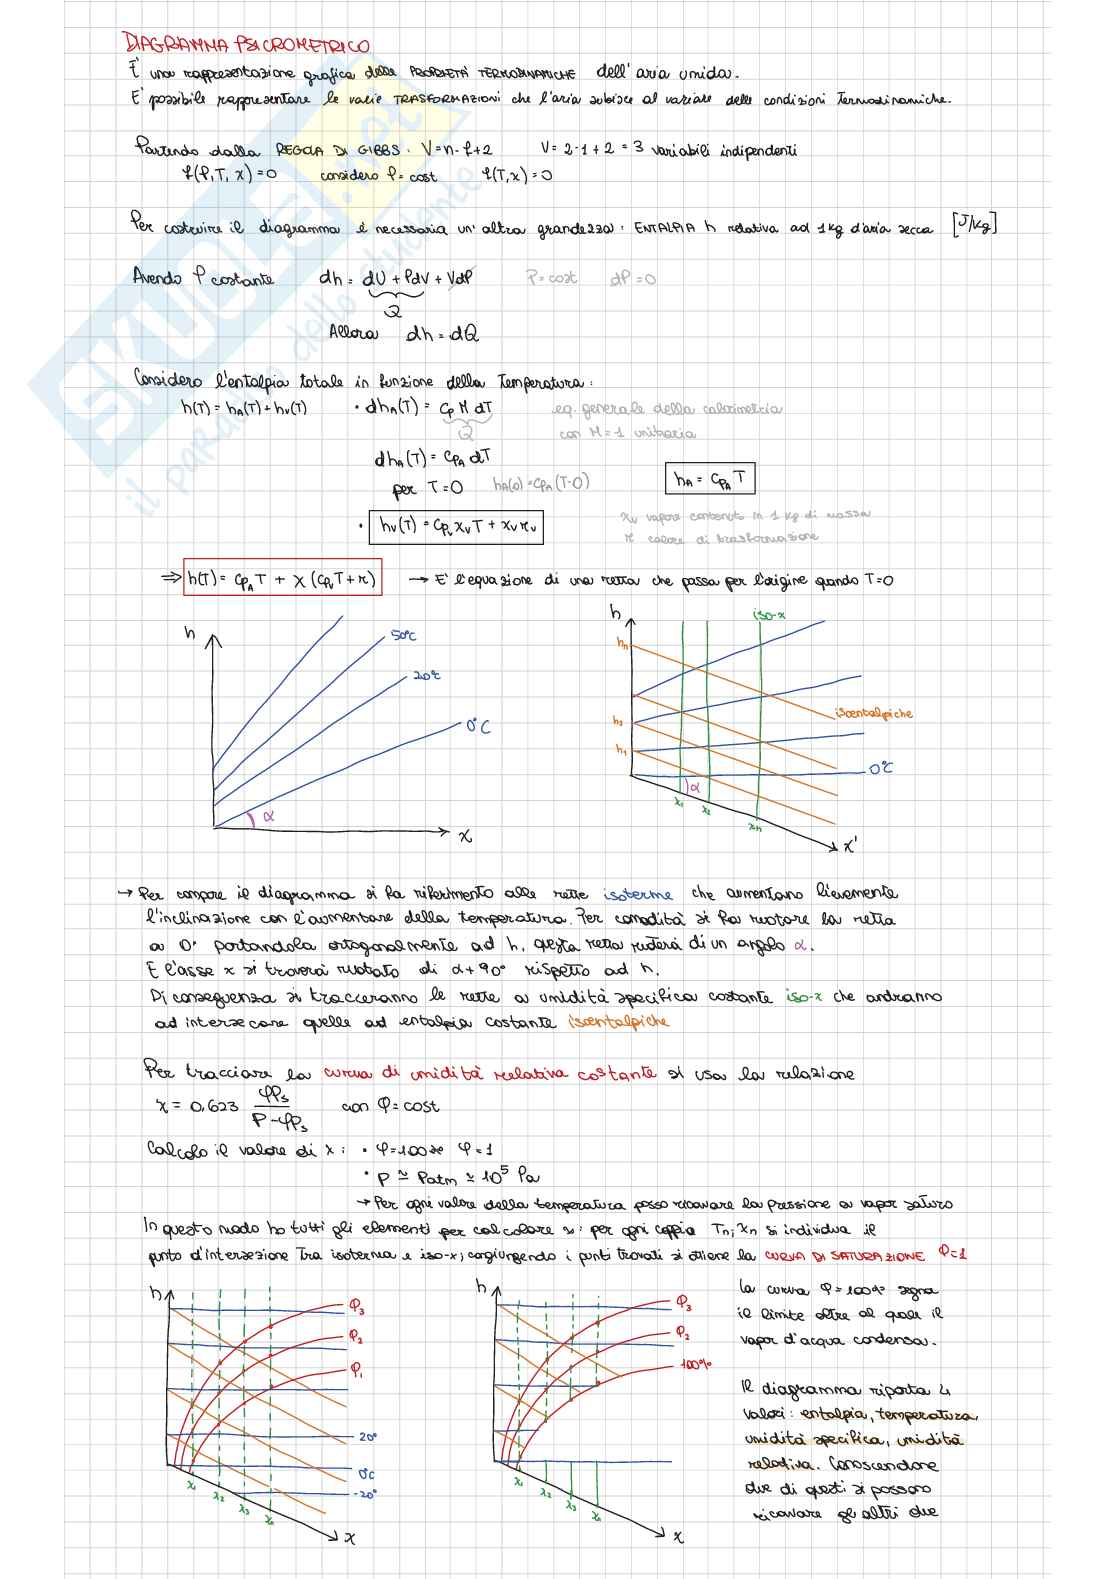 DIAGRAMMA PSICROMETRICO
È una rappresentazione grafica delle PROPRIETÀ TERMODINAMICHE dell'aria umida.
E' possibile rappresentare le varie TRASFORMAZIONI che l'aria subisce al variare delle condizioni termodinamiche.
Partendo dalla REGOLA DI GIBBS: V=n-f+2 V=2-1+2=3 variabili indipendenti
f(P,T,x)=0 considero P=cost f(T,x)=0
Per costruire il diagramma è necessaria un'altra grandezza: ENTALPIA h relativa ad 1kg d'aria secca [J/kg]
Avendo P costante dh = dU + PdV + VdP P=cost dP=0
Q
Allora dh=dQ
Considero l'entalpia totale in funzione della temperatura:
h(T)=hA(T)+hv(T) • dhA(T)= cp M dT eq. generale della calorimetria
Q con M=1 unitaria
dhA(T)= cpA dT
per T=0 hA(0)=cpA(T-0) hA = cpA T
• hv(T)= cpv xv T + xv rv xv vapore contenuto in 1 kg di massa
r calore di trasformazione
⇒ h(T)= cpA T + x (cpv T+r) → E' l'equazione di una retta che passa per l'origine quando T=0
h 50°C 20°C 0°C α x
h iso-x hn isoentalpiche h2 h1 0°C α x1 x2 xn x'
→ Per comporre il diagramma si fa riferimento alle rette isoterme che aumentano lievemente
l'inclinazione con l'aumentare della temperatura. Per comodità si fa ruotare la retta
a 0° portandola ortogonalmente ad h, questa retta ruoterà di un angolo α.
E l'asse x si troverà ruotato di α+90° rispetto ad h.
Di conseguenza si tracceranno le rette a umidità specifica costante iso-x che andranno
ad intersecare quelle ad entalpia costante isoentalpiche
Per tracciare la curva di umidità relativa costante si usa la relazione
x = 0,623 φPs / P-φPs con φ=cost
Calcolo il valore di x: • φ=100% φ=1
• P ≃ Patm ≃ 10⁵ Pa
→ Per ogni valore della temperatura posso ricavare la pressione a vapor saturo
In questo modo ho tutti gli elementi per calcolare x: per ogni coppia Tn; xn si individua il
punto d'intersezione tra isoterma e iso-x, congiungendo i punti trovati si ottiene la CURVA DI SATURAZIONE φ=1
h φ3 φ2 φ1 20° 0°C -20° x1 x2 x3 x
h φ3 φ2 100% x1 x2 x3 x
La curva φ=100% segna
il limite oltre al quale il
vapor d'acqua condensa.
Il diagramma riporta 4
valori: entalpia, temperatura,
umidità specifica, umidità
relativa. Conoscendone
due di questi si possono
ricavare gli altri due
SKUOLA.net
il paradiso dello studente